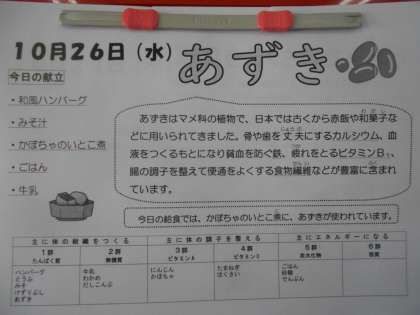 10月26日（水） あずき
今日の献立
・和風ハンバーグ
・みそ汁
・かぼちゃのいとこ煮
・ごはん
・牛乳
あずきはマメ科の植物で、日本では古くから赤飯や和菓子な
どに用いられてきました。骨や歯を丈夫にするカルシウム、血
液をつくるもとになり貧血を防ぐ鉄、疲れをとるビタミンB₁、
腸の調子を整えて便通をよくする食物繊維などが豊富に含まれ
ています。
今日の給食では、かぼちゃのいとこ煮に、あずきが使われています。
主に体の組織をつくる 主に体の調子を整える 主にエネルギーになる
1群 2群 3群 4群 5群 6群
たんぱく質 無機質 ビタミンA ビタミンC 炭水化物 脂質
ハンバーグ 牛乳 にんじん たまねぎ ごはん
とうふ わかめ かぼちゃ はくさい 砂糖
みそ だしこんぶ でんぷん
けずりぶし
あずき